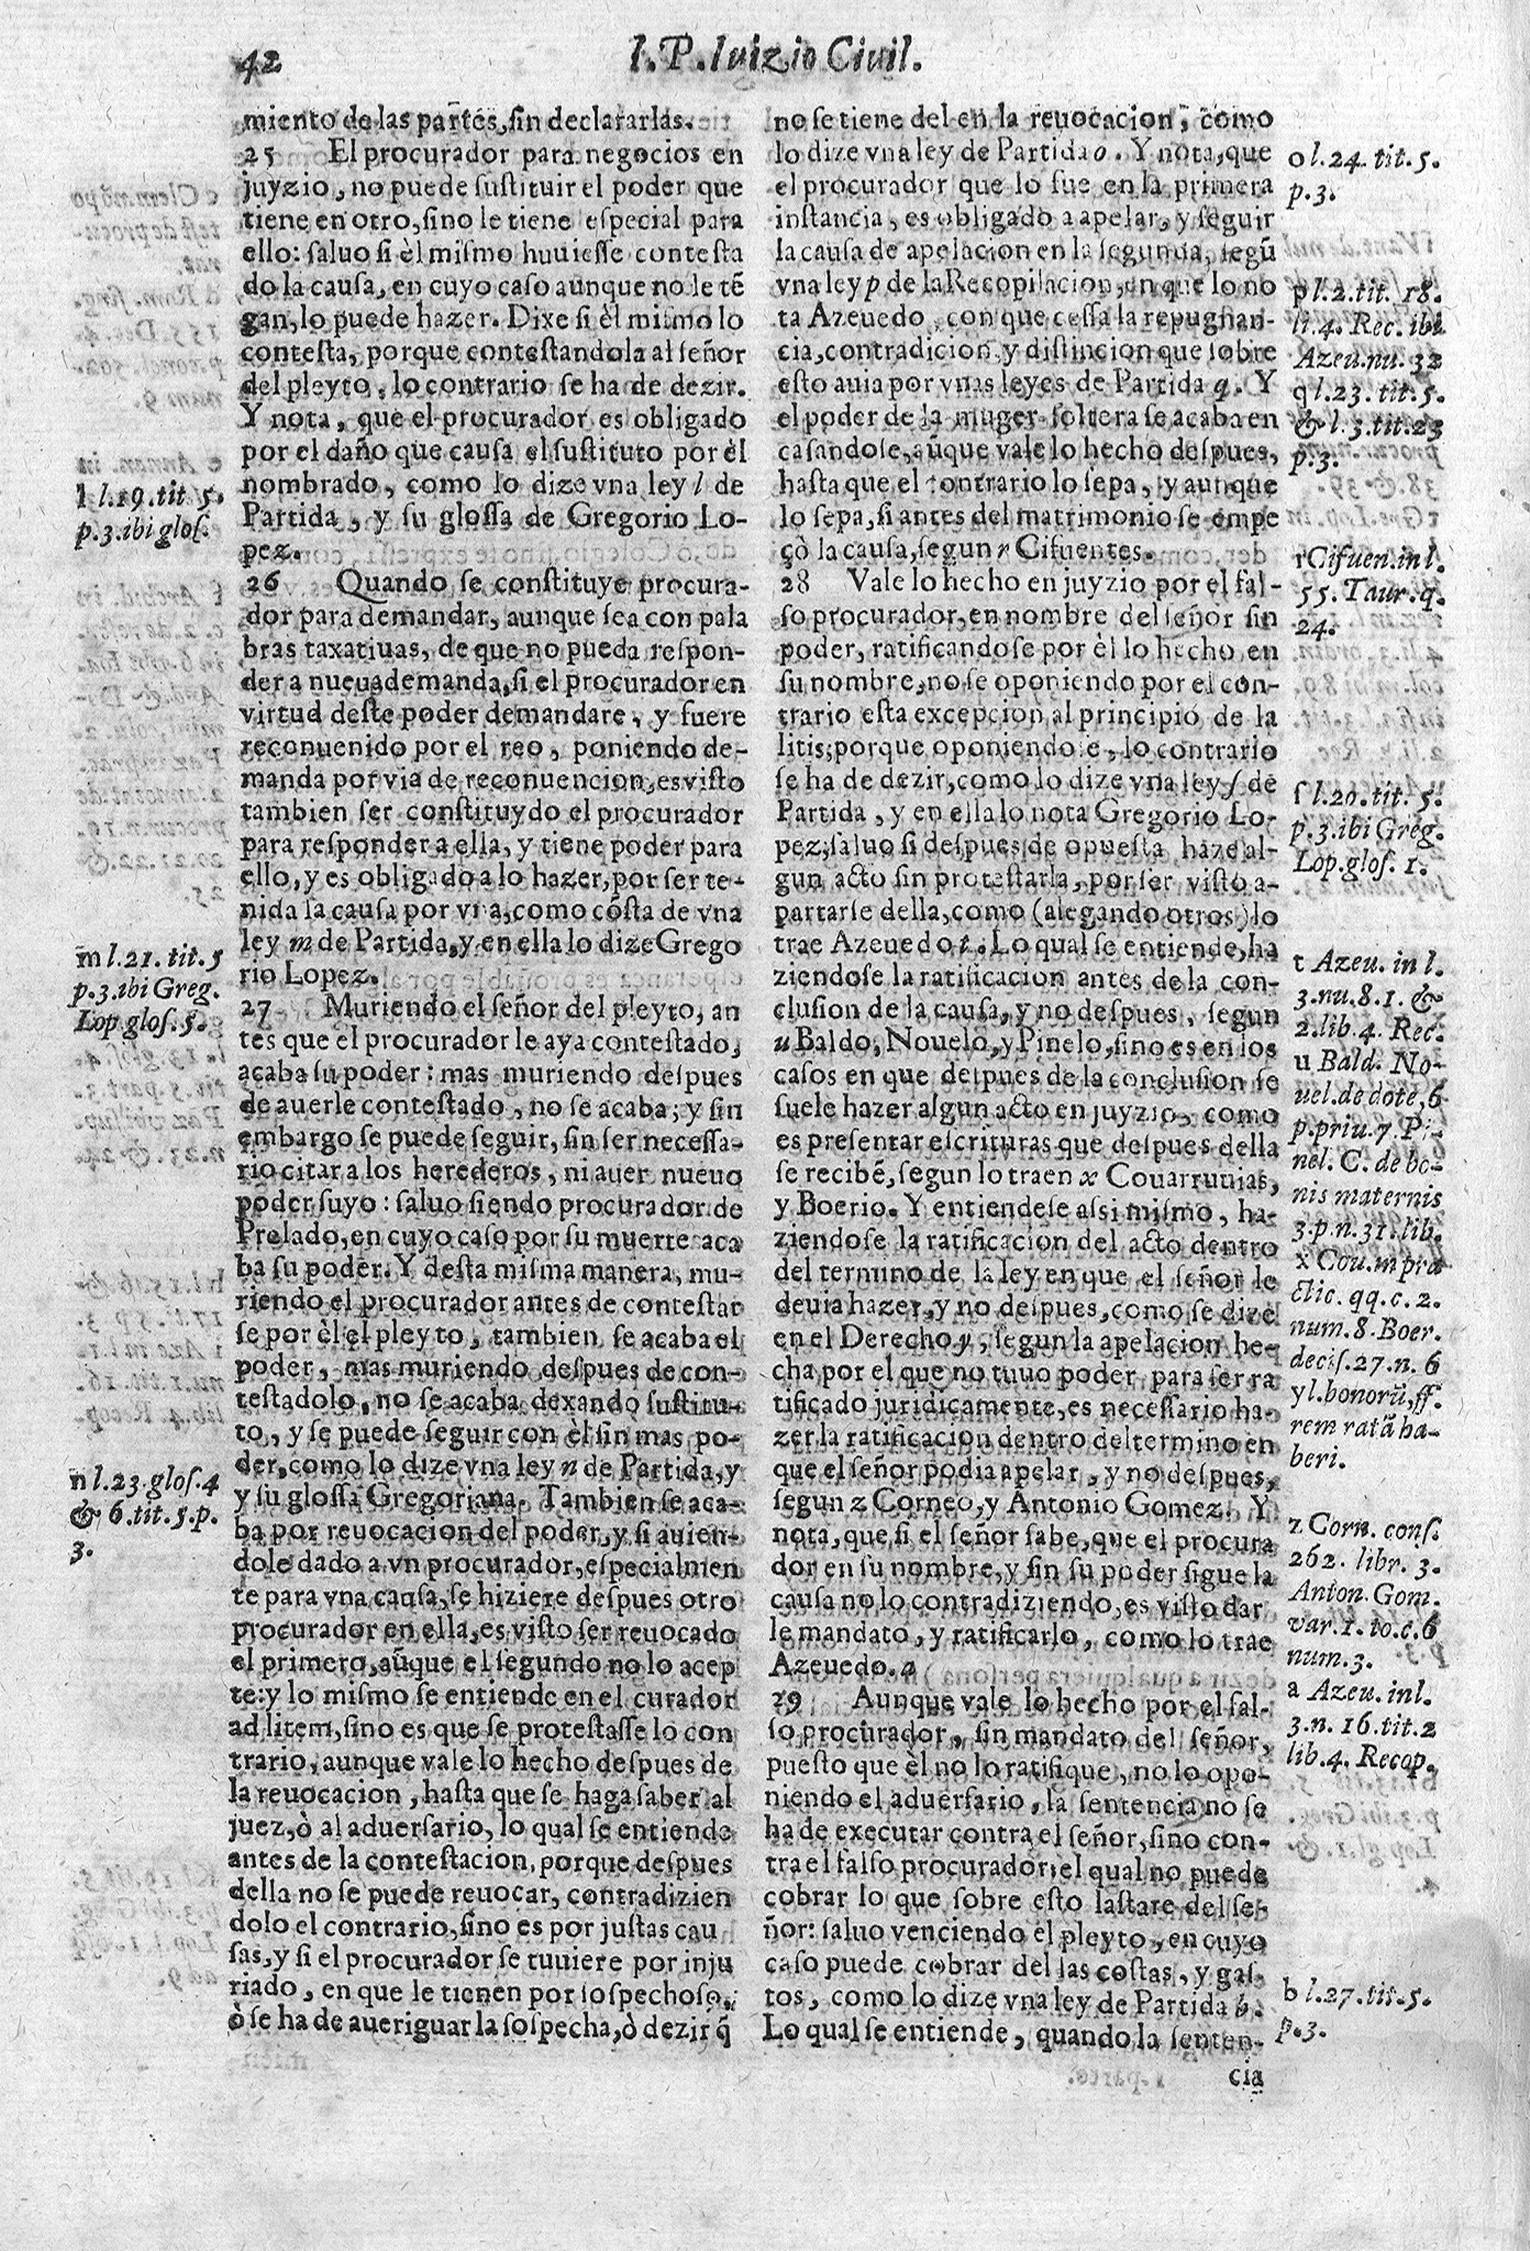 42
I.P. Iuizio Ciuil.
miento de las partes, sin declararlas.
25 El procurador para negocios en
juyzio, no puede sustituir el poder que
tiene en otro, sino le tiene especial para
ello: saluo si èl mismo huuiesse contesta
do la causa, en cuyo caso aunque no le tē
gan, lo puede hazer. Dixe si èl mismo lo
contesta, porque contestandola al señor
del pleyto, lo contrario se ha de dezir.
Y nota, que el procurador es obligado
por el daño que causa el sustituto por èl
nombrado, como lo dize vna ley l de
Partida, y su glossa de Gregorio Lo-
pez.
26 Quando se constituye procura-
dor para demandar, aunque sea con pala
bras taxatiuas, de que no pueda respon-
der a nueua demanda, si el procurador en
virtud deste poder demandare, y fuere
reconuenido por el reo, poniendo de-
manda por via de reconuencion, es visto
tambien ser constituydo el procurador
para responder a ella, y tiene poder para
ello, y es obligado a lo hazer, por ser te-
nida la causa por vna, como cōsta de vna
ley m de Partida, y en ella lo dize Grego
rio Lopez.
27 Muriendo el señor del pleyto, an
tes que el procurador le aya contestado,
acaba su poder: mas muriendo despues
de auerle contestado, no se acaba; y sin
embargo se puede seguir, sin ser necessa-
rio citar a los herederos, ni auer nueuo
poder suyo: saluo siendo procurador de
Prelado, en cuyo caso por su muerte aca
ba su poder. Y desta misma manera, mu-
riendo el procurador antes de contestar
se por èl el pleyto, tambien se acaba el
poder, mas muriendo despues de con-
testadolo, no se acaba, dexando sustitu-
to, y se puede seguir con èl sin mas po-
der, como lo dize vna ley n de Partida, y
y su glossa Gregoriana. Tambien se aca-
ba por reuocacion del poder, y si auien-
dole dado a vn procurador, especialmen
te para vna causa, se hiziere despues otro
procurador en ella, es visto ser reuocado
el primero, aūque el segundo no lo acep
te: y lo mismo se entiende en el curador
ad litem, sino es que se protestasse lo con
trario, aunque vale lo hecho despues de
la reuocacion, hasta que se haga saber al
juez, ò al aduersario, lo qual se entiende
antes de la contestacion, porque despues
della no se puede reuocar, contradizien
dolo el contrario, sino es por justas cau
sas, y si el procurador se tuuiere por inju
riado, en que le tienen por sospechoso,
ò se ha de aueriguar la sospecha, ò dezir q̃
l l.19. tit. 5.
p.3. ibi glos.
m l.21. tit. 5
p.3. ibi Greg.
Lop. glos. 5.
n l.23. glos. 4
& 6. tit. 5. p.
3.
no se tiene del en la reuocacion, como
lo dize vna ley de Partida o. Y nota, que
el procurador que lo fue en la primera
instancia, es obligado a apelar, y seguir
la causa de apelacion en la segunda, segū
vna ley p de la Recopilacion, en que lo no
ta Azeuedo, con que cessa la repugnan-
cia, contradicion, y distincion que sobre
esto auia por vnas leyes de Partida q. Y
el poder de la muger soltera se acaba en
casandose, aūque vale lo hecho despues,
hasta que el contrario lo sepa, y aunque
lo sepa, si antes del matrimonio se empe
çò la causa, segun r Cifuentes.
28 Vale lo hecho en juyzio por el fal-
so procurador, en nombre del señor sin
poder, ratificandose por èl lo hecho en
su nombre, no se oponiendo por el con-
trario esta excepcion al principio de la
litis; porque oponiendose, lo contrario
se ha de dezir, como lo dize vna ley s de
Partida, y en ella lo nota Gregorio Lo-
pez, saluo si despues de opuesta haze al-
gun acto sin protestarla, por ser visto a-
partarse della, como (alegando otros) lo
trae Azeuedo t. Lo qual se entiende, ha
ziendose la ratificacion antes de la con-
clusion de la causa, y no despues, segun
u Baldo, Nouelo, y Pinelo, sino es en los
casos en que despues de la conclusion se
suele hazer algun acto en juyzio, como
es presentar escrituras que despues della
se recibē, segun lo traen x Couarruuias,
y Boerio. Y entiendese assi mismo, ha-
ziendose la ratificacion del acto dentro
del termino de la ley en que el señor le
deuia hazer, y no despues, como se dize
en el Derecho y, segun la apelacion he-
cha por el que no tuuo poder para ser ra
tificado juridicamente, es necessario ha-
zer la ratificacion dentro del termino en
que el señor podia apelar, y no despues,
segun z Corneo, y Antonio Gomez. Y
nota, que si el señor sabe, que el procura
dor en su nombre, y sin su poder sigue la
causa no lo contradiziendo, es visto dar
le mandato, y ratificarlo, como lo trae
Azeuedo. a
29 Aunque vale lo hecho por el fal-
so procurador, sin mandato del señor,
puesto que èl no lo ratifique, no lo opo-
niendo el aduersario, la sentencia no se
ha de executar contra el señor, sino con-
tra el falso procurador, el qual no puede
cobrar lo que sobre esto lastare del se-
ñor: saluo venciendo el pleyto, en cuyo
caso puede cobrar del las costas, y gas-
tos, como lo dize vna ley de Partida b.
Lo qual se entiende, quando la senten-
cia
o l.24. tit. 5.
p.3.
p l.2. tit. 18.
li.4. Rec. ibi
Azeu. nu. 32
q l.23. tit. 5.
& l. 3. tit. 23
p.3.
r Cifuen. in l.
55. Taur. q.
24.
s l.20. tit. 5.
p.3. ibi Greg.
Lop. glos. 1.
t Azeu. in l.
3. nu. 8. 1. &
2. lib. 4. Rec.
u Bald. No-
uel. de dote, 6
p. priu. 7. Pi-
nel. C. de bo-
nis maternis
3. p. n. 31. lib.
x Cou. in pra
ctic. qq. c. 2.
num. 8. Boer.
decis. 27. n. 6
y l. bonorū, ff.
rem ratā ha-
beri.
z Corn. cons.
262. libr. 3.
Anton. Gom.
var. 1. to. c. 6
num. 3.
a Azeu. in l.
3. n. 16. tit. 2
lib. 4. Recop.
b l.27. tit. 5.
p.3.